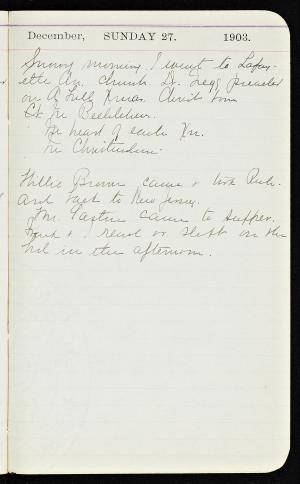 December, SUNDAY 27. 1903.
Snowy morning. I went to Lafay-
ette Av. church. D. Gregg preached
on A Full Xmas. Christ born
1st In Bethlehem.
In heart of each Xn.
In Christendom.
Willie Brown came & took Rub.
and back to New Jersey.
Mr. Easton came to supper.
& I read or slept on the
bed in the afternoon.